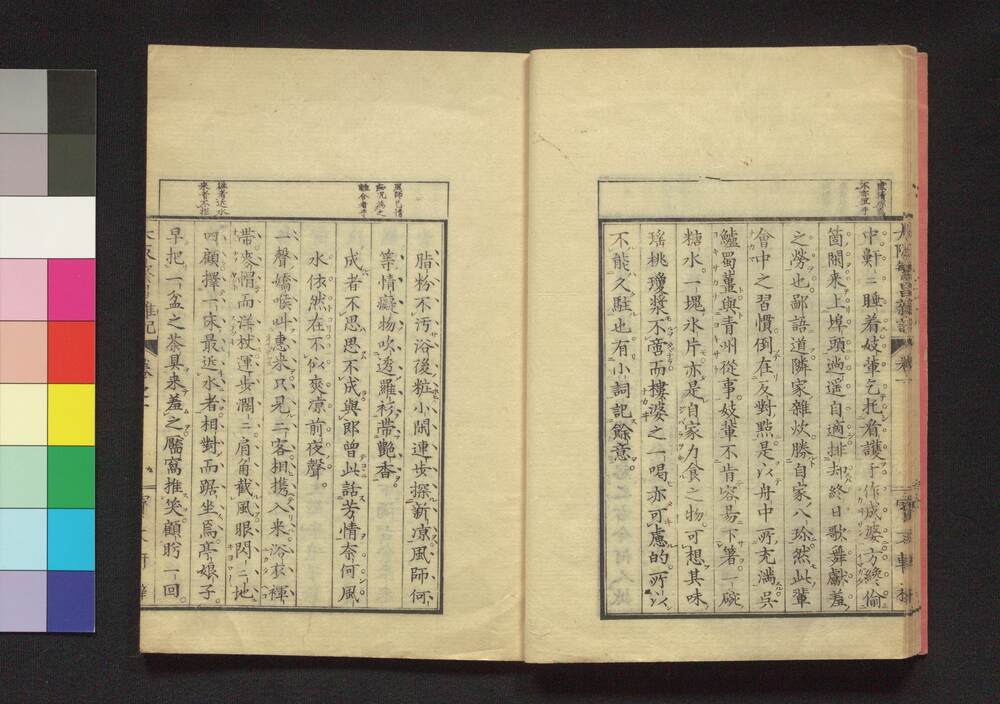 中鼾〻睡着妓輩乞托看護于作成婆方纔偷
箇閑来上埠頭逍遥自適排却終日歌舞獻羞
之勞也鄙語道隣家雜炊勝自家八珍然此輩
會中之習慣倒在反對點是以舟中所充滿呉
鱸蜀薑與青州從事妓輩不肯容易下箸一碗
糖水一塊氷片亦是自家力食之物可想其味
瑤桃瓊漿不啻而樓婆之一喝亦可慮的所以
不能久駐也有小詞記餘意
脂粉不汚浴後粧小閑連歩探新凉風師何
等情癡物吹透羅衫帶艷香
成者不思思不成與郎曾此話芳情奈何風
水依然在不似爽凉前夜聲
一聲嬌喉叫惠来只見二客相携入来浴衣褌
帶麥帽而洋杖運歩濶〻肩角截風眼閃〻地
四顧擇一床最近水者相對而踞坐焉亭娘子
早把一盆之茶具来羞之靨窩推笑顧盻一回